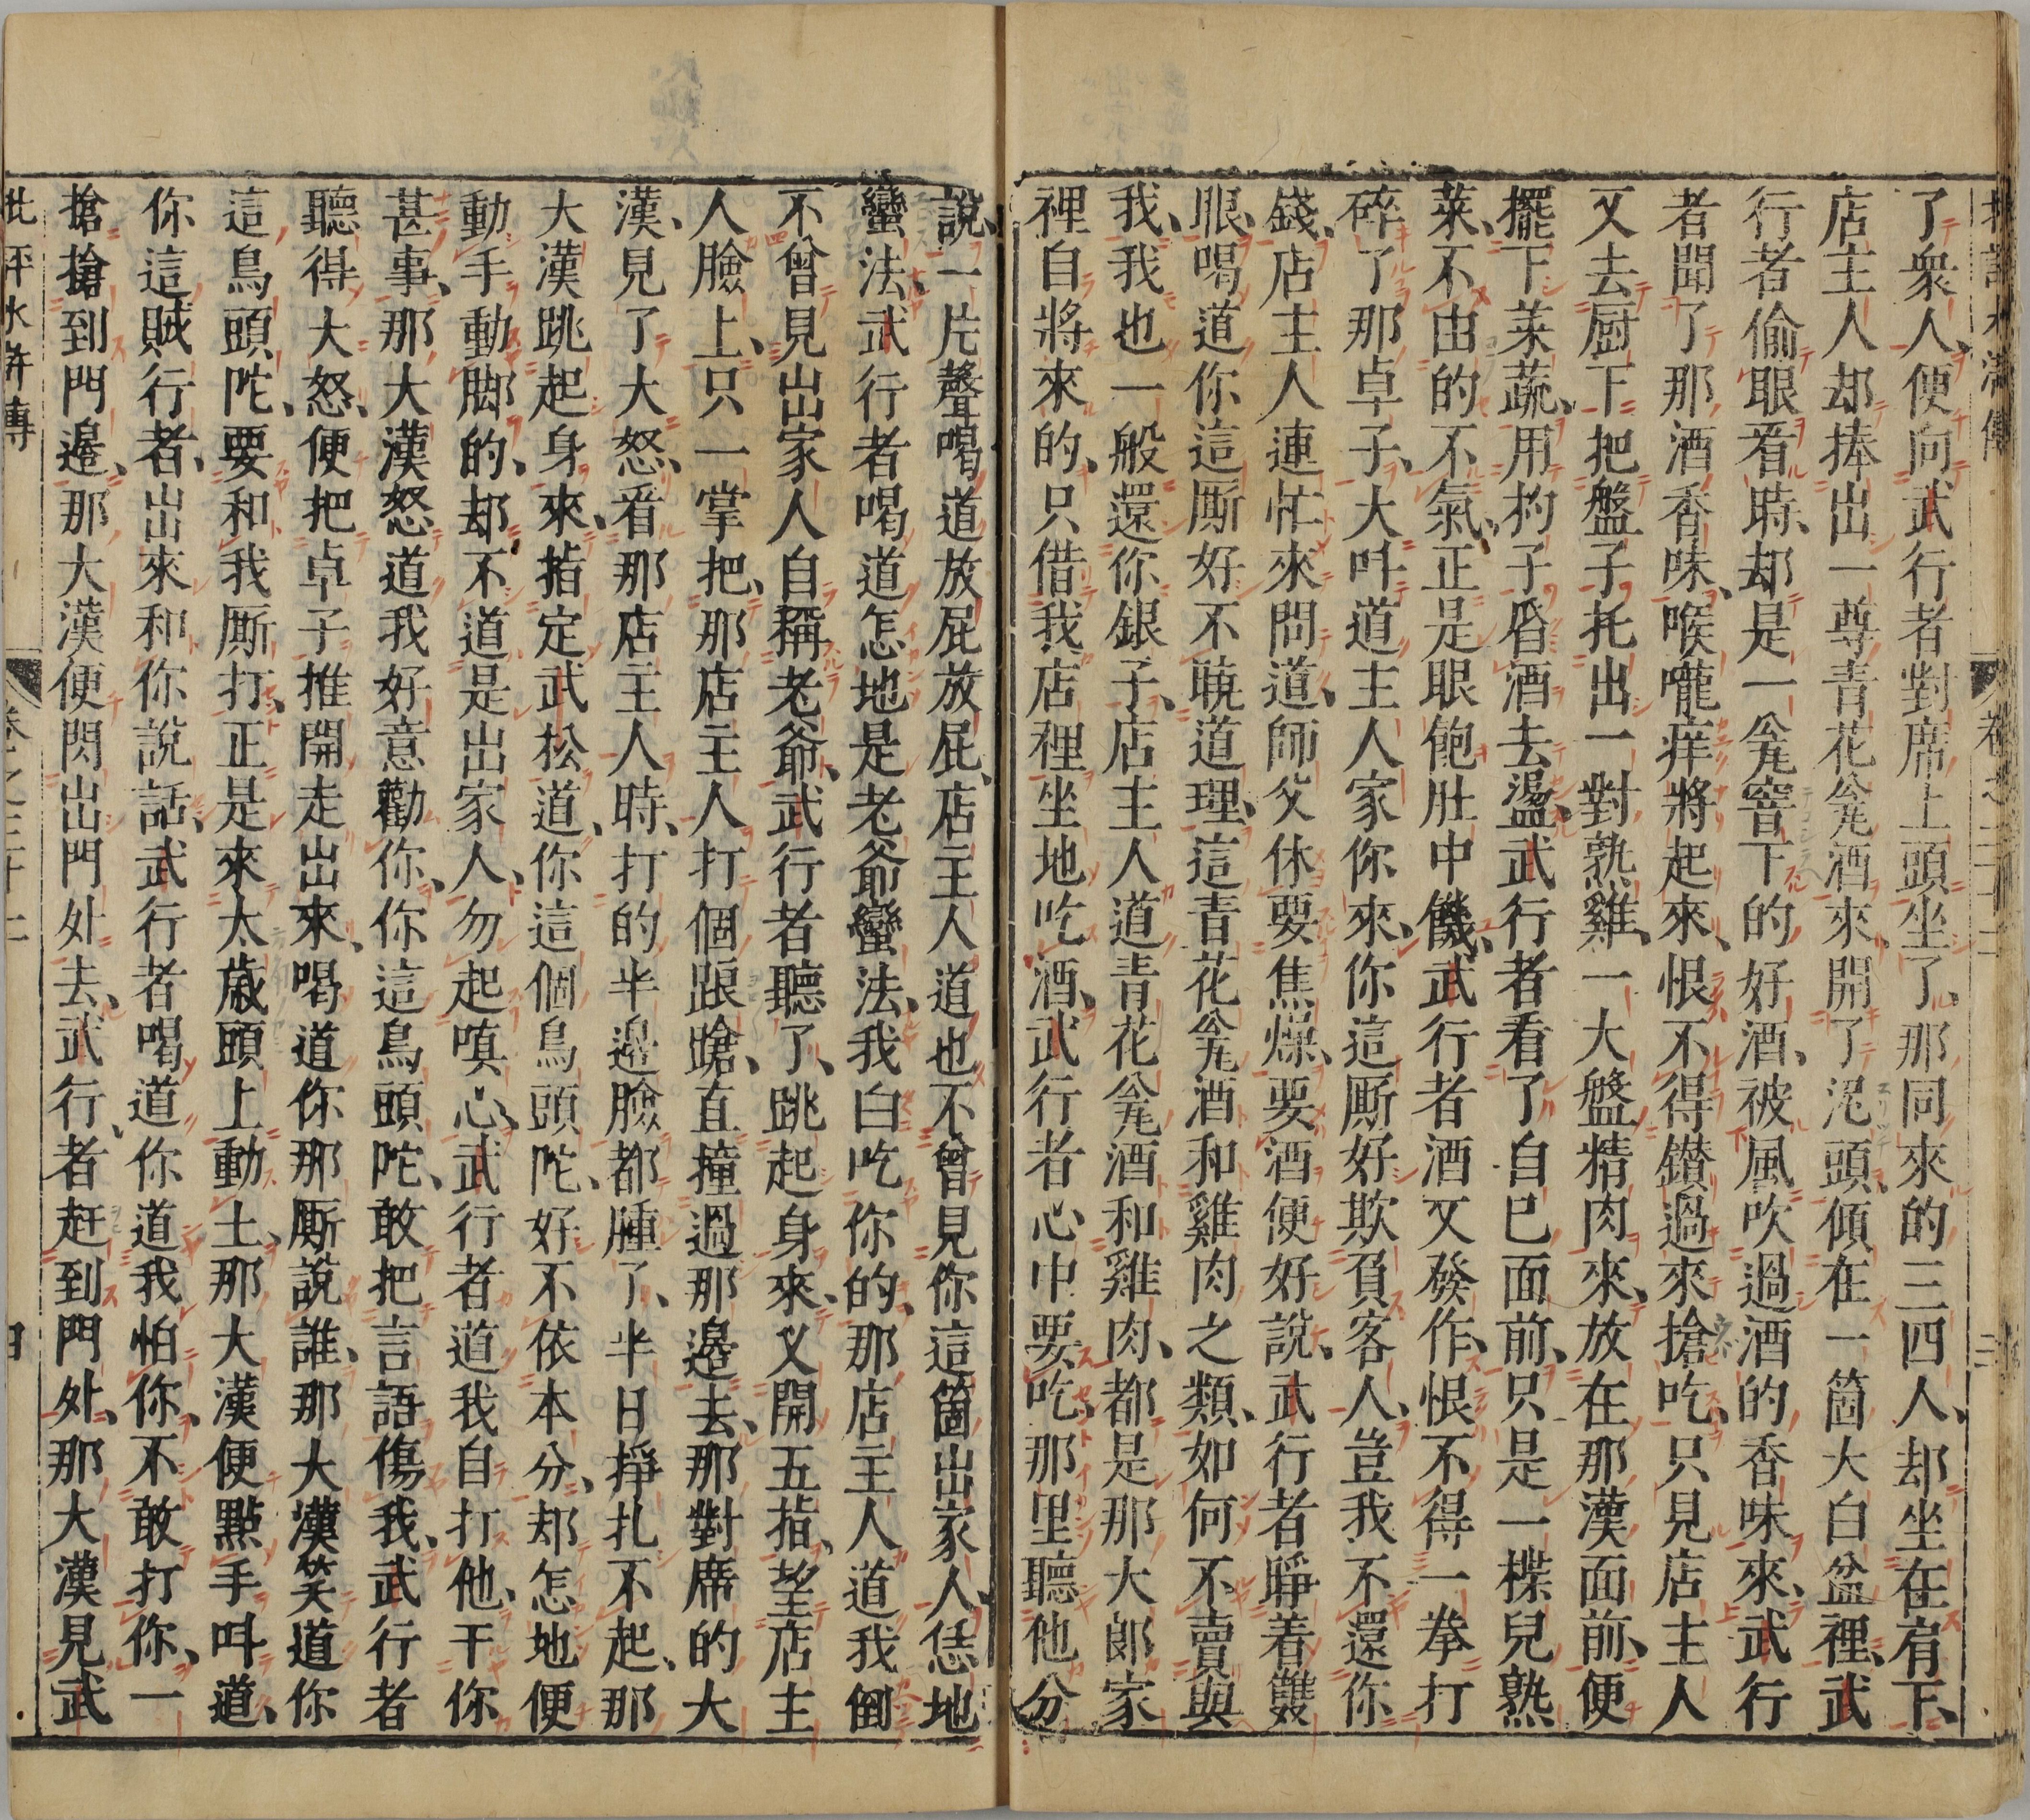 了衆人、便向武行者對席上頭坐了、那同來的三四人、却坐在肩下、
店主人却捧出一尊青花瓮酒來、開了泥頭、傾在一箇大白盆裡、武
行者偷眼看時、却是一瓮窨下的好酒、被風吹過酒的香味來、武行
者聞了那酒香味、喉嚨痒將起來、恨不得鑚過來搶吃、只見店主人
又去厨下把盤子托出一對熟雞、一大盤精肉來、放在那漢面前、便
擺下菜蔬、用杓子舀酒去盪、武行者看了自己面前、只是一楪兒熟
菜、不由的不氣、正是眼飽肚中饑、武行者酒又發作、恨不得一拳打
碎了那卓子、大呌道主人家你來、你這厮好欺負客人、豈我不還你
錢、店主人連忙來問道、師父休要焦燥、要酒便好說、武行者睜着雙
眼喝道你這厮好不曉道理、這青花瓮酒和雞肉之類、如何不賣與
我、我也一般還你銀子、店主人道青花瓮酒和雞肉、都是那大郎家
裡自將來的、只借我店裡坐地吃酒、武行者心中要吃、那里聽他分
說、一片聲喝道放屁放屁、店主人道也不曾見你這箇出家人、恁地
蠻法、武行者喝道怎地是老爺蠻法、我白吃你的、那店主人道我倒
不曾見出家人自稱老爺、武行者聽了、跳起身來、叉開五指、望店主
人臉上、只一掌把那店主人打個踉蹌、直撞過那邊去、那對席的大
漢、見了大怒、看那店主人時、打的半邊臉都腫了、半日掙扎不起、那
大漢跳起身來、指定武松道、你這個鳥頭陀、好不依本分、却怎地便
動手動脚的、却不道是出家人、勿起嗔心、武行者道我自打他、干你
甚事、那大漢怒道我好意勸你、你這鳥頭陀、敢把言語傷我、武行者
聽得大怒、便把卓子推開走出來、喝道你那厮說誰、那大漢笑道你
這鳥頭陀、要和我厮打、正是來太歲頭上動土、那大漢便點手呌道、
你這賊行者、出來和你說話、武行者喝道你道我怕你、不敢打你、一
搶搶到門邊、那大漢便閃出門外去、武行者赶到門外、那大漢見武
批評水滸傳 卷之三十二 四